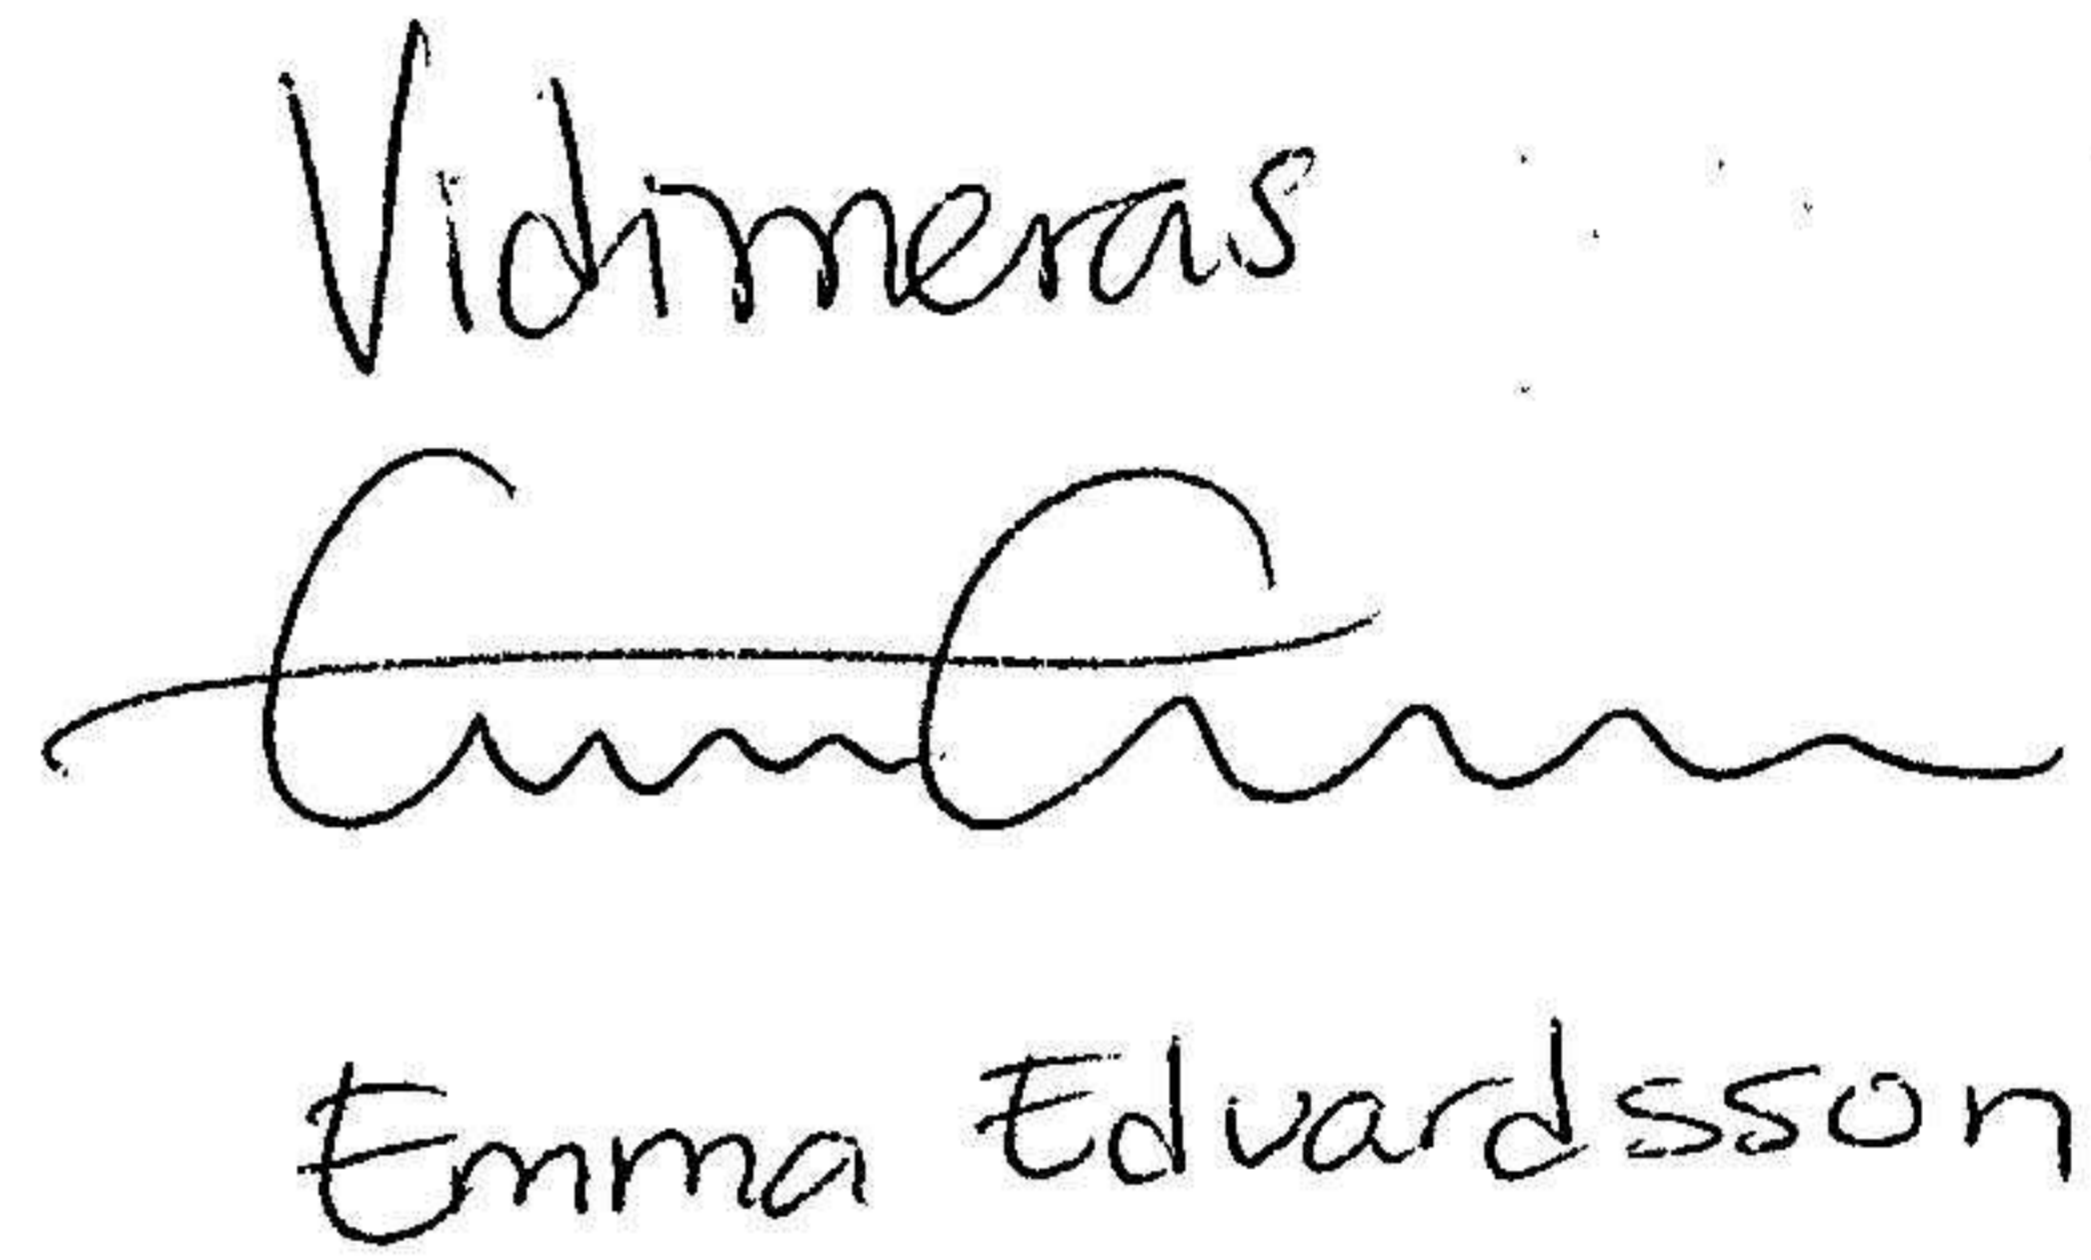 Vidimeras
Emma Edvardsson